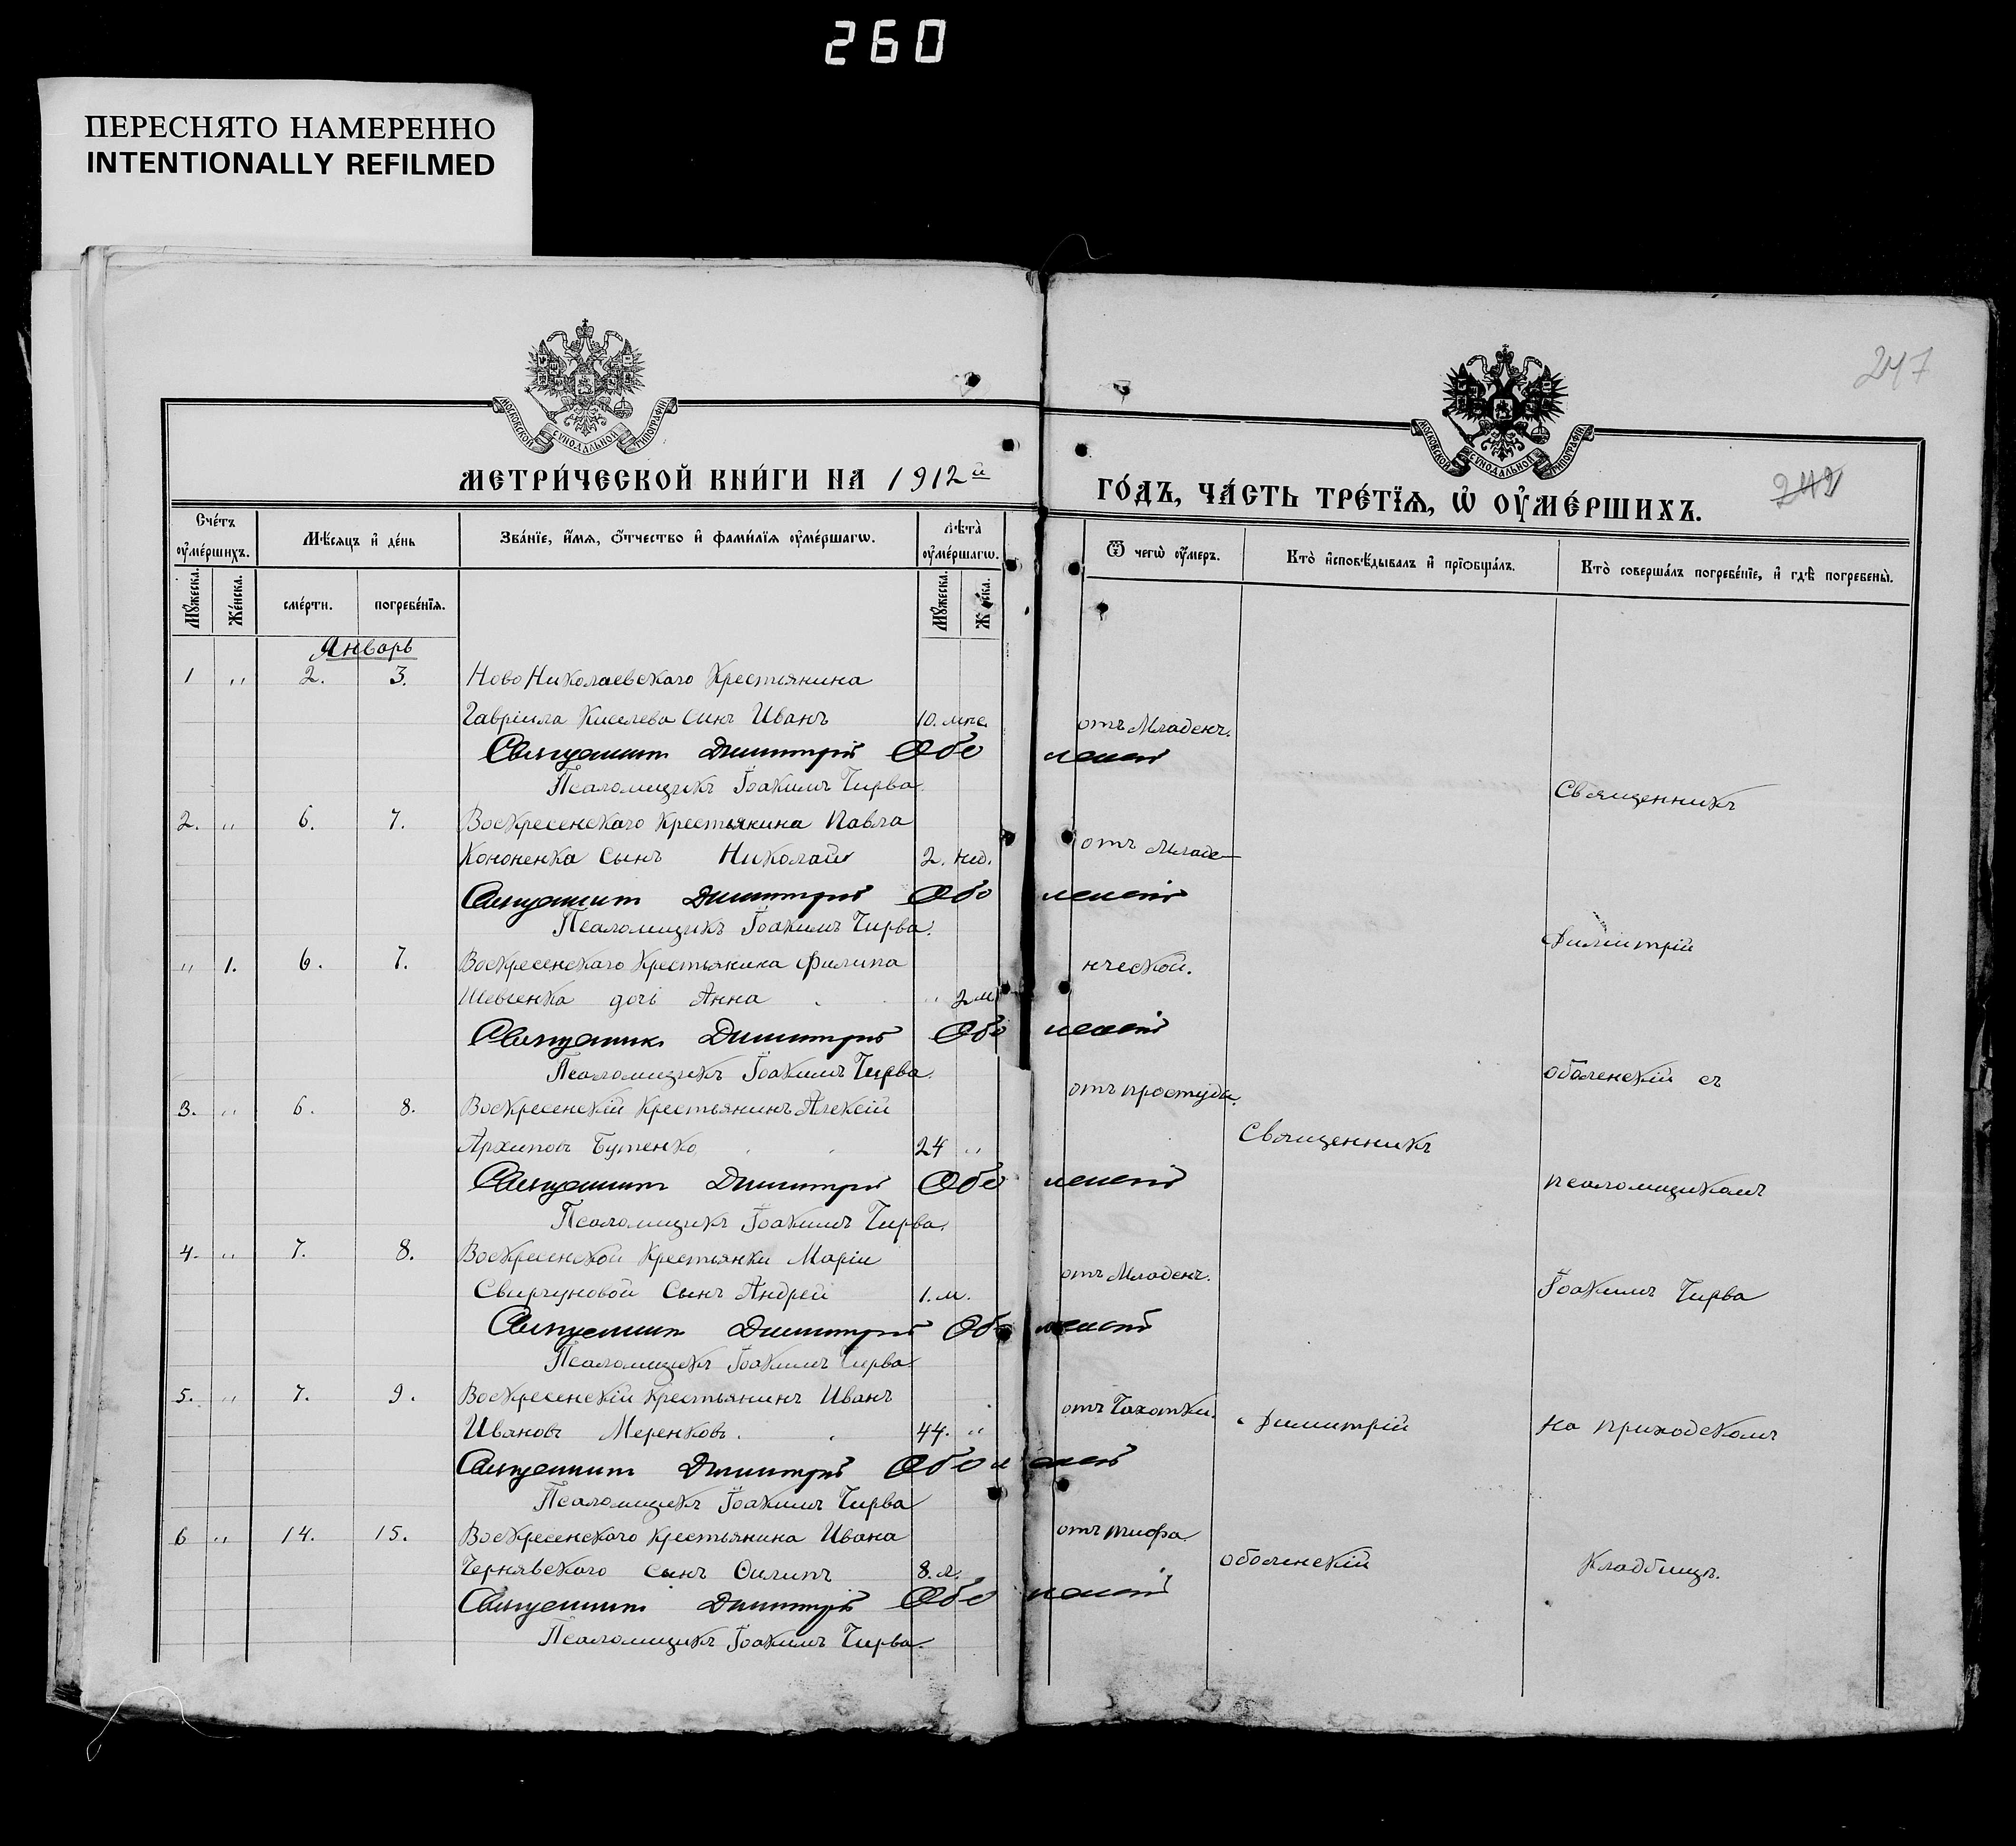 260
ПЕРЕСНЯТО НАМЕРЕННО
INTENTIONALLY REFILMED
247
МОСКОВСКОЙ СѴНОДАЛЬНОЙ ТИПОГРАФІИ
МОСКОВСКОЙ СѴНОДАЛЬНОЙ ТИПОГРАФІИ
МЕТРИ́ЧЕСКОЙ КНИ́ГИ НА 1912й ГО́ДЪ, ЧА́СТЬ ТРЕ́ТЇѦ, Ѡ҆ ОУ҆МЕ́РШИХЪ.
242
Сче́тъ оу҆ме́ршихъ.
Мѣ́сяцъ и҆ де́нь
Зва́нїе, и҆́мѧ, ѻ҆́тчество и҆ фами́лїѧ оу҆ме́ршагѡ.
Лѣта̀ оу҆ме́ршагѡ.
Ѿ чегѡ̀ оу҆́меръ.
Кто̀ и҆сповѣ́дывалъ и҆ прїѡбща́лъ.
Кто̀ соверша́лъ погребе́нїе, и҆ гдѣ̀ погребены̀.
Мꙋ́жеска. Же́нска. сме́рти. погребе́нїѧ. Мꙋ́жеска. ска.
Январь
1 " 2. 3. Ново Николаевскаго Крестьянина
Гавріила Киселева сынъ Иванъ 10. мпс. отъ Младенч.
Священникъ Димитрій Оболенскій
Псаломщикъ Іоакимъ Чирва.
Священникъ
2. " 6. 7. Воскресенскаго Крестьянина Павла
Кононенка сынъ Николай 2. нед. отъ Младе-
Священникъ Димитрій Оболенскій
Псаломщикъ Іоакимъ Чирва.
Димитрій
" 1. 6. 7. Воскресенскаго Крестьянина Филипа нческой.
Шевченка дочь Анна " 2 м
Священникъ Димитрій Оболенскій
Псаломщикъ Іоакимъ Чирва.
Оболенскій съ
3. " 6. 8. Воскресенскій Крестьянинъ Алексій отъ простуды.
Архиповъ Бутенко 24 " Священникъ
Священникъ Димитрій Оболенскій
псаломщикомъ
Псаломщикъ Іоакимъ Чирва.
4. " 7. 8. Воскресенской Крестьянки Маріи
Свиргуновой сынъ Андрей 1. м. отъ Младенч. Іоакимъ Чирва
Священникъ Димитрій Оболенскій
Псаломщикъ Іоакимъ Чирва
5. " 7. 9. Воскресенскій Крестьянинъ Иванъ отъ Чахотки.
Ивановъ Меренковъ. 44. " Димитрій на приходскомъ
Священникъ Димитрій Оболенскій
Псаломщикъ Іоакимъ Чирва
6 " 14. 15. Воскресенскаго Крестьянина Ивана отъ тифа
Чернявскаго сынъ Филипъ 8. л. Оболенскій Кладбищѣ.
Священникъ Димитрій Оболенскій
Псаломщикъ Іоакимъ Чирва.